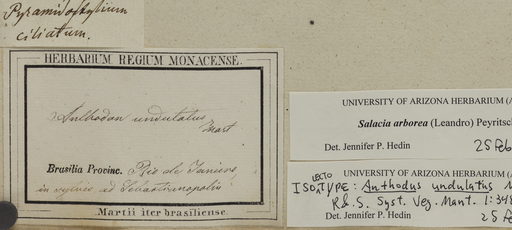 Pyramidostylium
ciliatum.
HERBARIUM REGIUM MONACENSE.
Anthodon undulatus
Mart
Brasilia Provinc. Rio de Janeiro,
in sylvis ad Sebastianopolin
Martii iter brasiliense.
UNIVERSITY OF ARIZONA HERBARIUM (A
Salacia arborea (Leandro) Peyritsch
Det. Jennifer P. Hedin 25 Feb
UNIVERSITY OF ARIZONA HERBARIUM (A
LECTO
ISOTYPE: Anthodus undulatus M
R.&.S. Syst. Veg. Mant. 1:348
Det. Jennifer P. Hedin 25 F